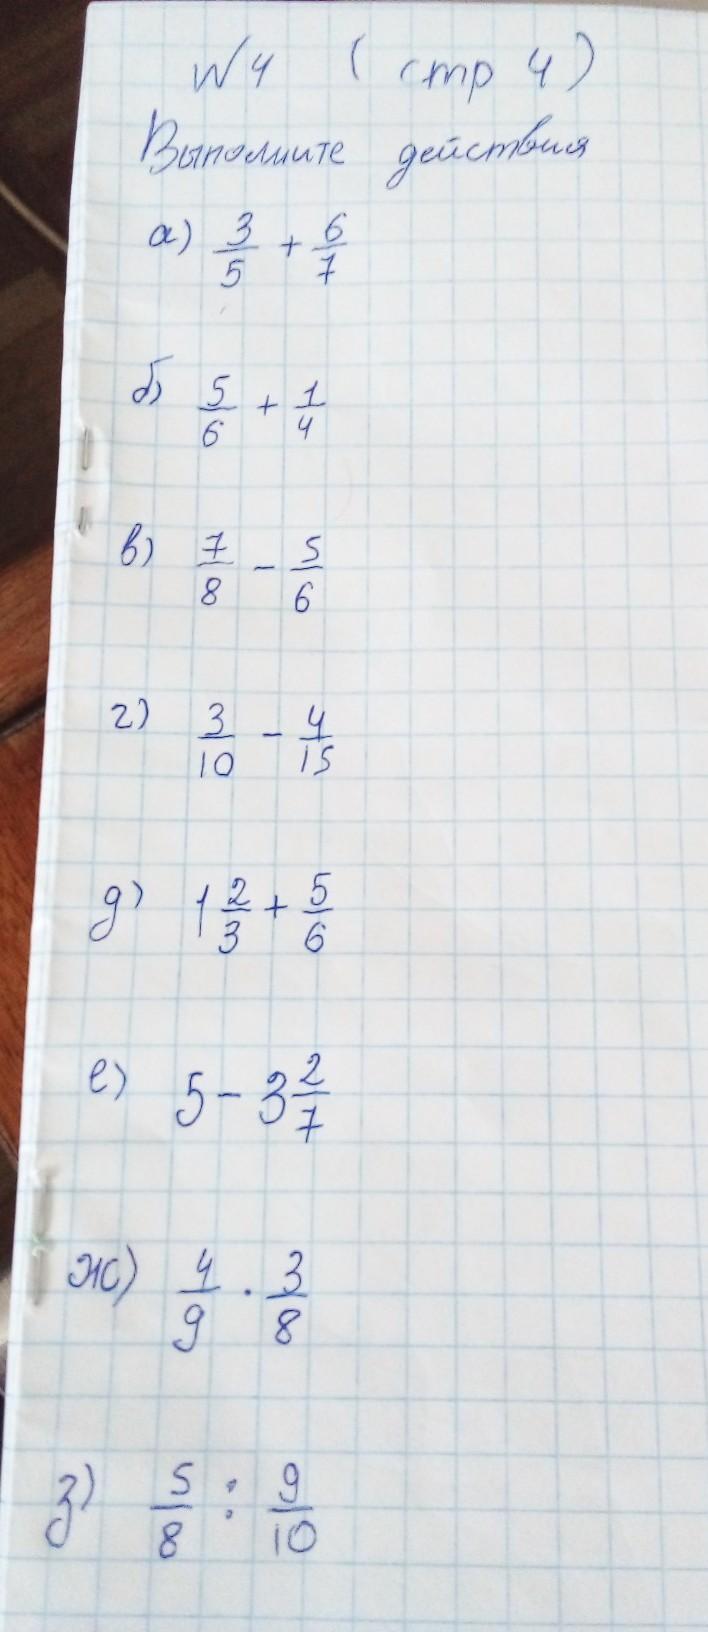 №4 (стр 4)
Выполните действия
а) 3/5 + 6/7
б) 5/6 + 1/4
в) 7/8 - 5/6
г) 3/10 - 4/15
д) 1 2/3 + 5/6
е) 5 - 3 2/7
ж) 4/9 · 3/8
з) 5/8 : 9/10